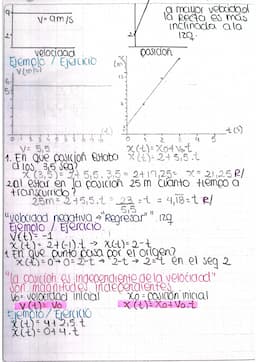 a mayor velocidad
la recta es más
inclinada a la
izq.
V = am/s
velocidad
posición
Ejemplo / Ejercicio
V(m/s)
x
(m)
t(s)
V = 5,5
x(t) = x0+V0·t
x(t) = 2+5,5·t
1. En que posición estará
a los 3,5 seg?
x(3,5) = 2+5,5·3,5 = 2+19,25 x = 21,25 R/
2. al estar en la posición 25 m cuánto tiempo a
transcurrido?
25m = 2+5,5·t = 23/5,5 = t = 4,18 = t R/
"velocidad negativa → "Regresar" izq
Ejemplo / Ejercicio
V(t) = -1
x(t) = 2+(-1)·t → x(t) = 2-t
1. En que punto pasa por el origen?
x(t) = 0 → 0 = 2-t → 2-t → 2 = t en el seg 2
"la posición es independiente de la velocidad"
son magnitudes independientes
V0 = velocidad inicial X0 = posición inicial
V(t) = V0 x(t) = X0+V0·t
Ejemplo / Ejercicio
x(t) = 4+2,5·t
x(t) = 0+4·t